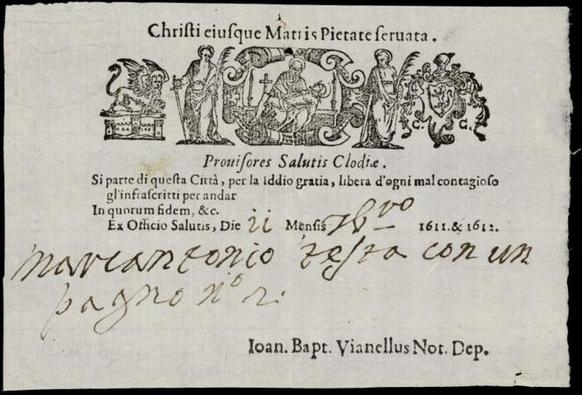 Christi eiusque Matris Pietate seruata.
C. G.
Prouisores Salutis Clodiæ.
Si parte di questa Città, per la Iddio gratia, libera d'ogni mal contagioso
gl'infrascritti per andar
In quorum fidem, &c.
Ex Officio Salutis, Die ii Mensis 7bro 1611. & 1612.
Marcantonio testa con un
pagno nº 2.
Ioan. Bapt. Vianellus Not. Dep.